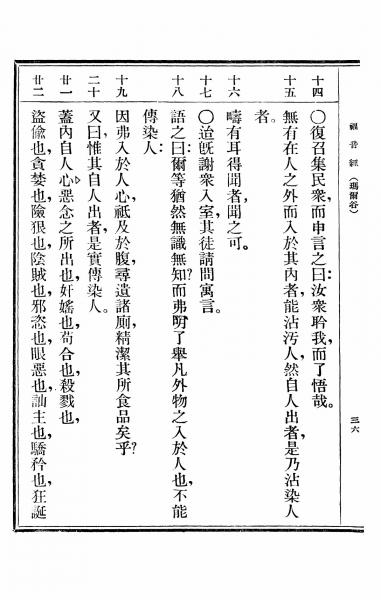 福音經（瑪爾谷）
三六
十四
〇復召集民衆，而申言之曰：汝衆聆我，而了悟哉。
十五
無有在人之外而入於其內者，能沾污人，然自人出者，是乃沾染人
者。
十六
疇有耳得聞者，聞之可。
十七
〇迨旣謝衆入室，其徒請問寓言。
十八
語之曰：爾等猶然無識無知？而弗明了舉凡外物之入於人也，不能
傳染人：
十九
因弗入於人心，祗及於腹，尋遺諸廁，精潔其所食品矣乎？
二十
又曰，惟其自人出者，是實傳染人。
廿一
蓋內自人心，惡念之所出也，奸婬也，苟合也，殺戮也，
廿二
盜偸也，貪婪也，險狠也，陰賊也，邪恣也，眼惡也，訕主也，驕矜也，狂誕